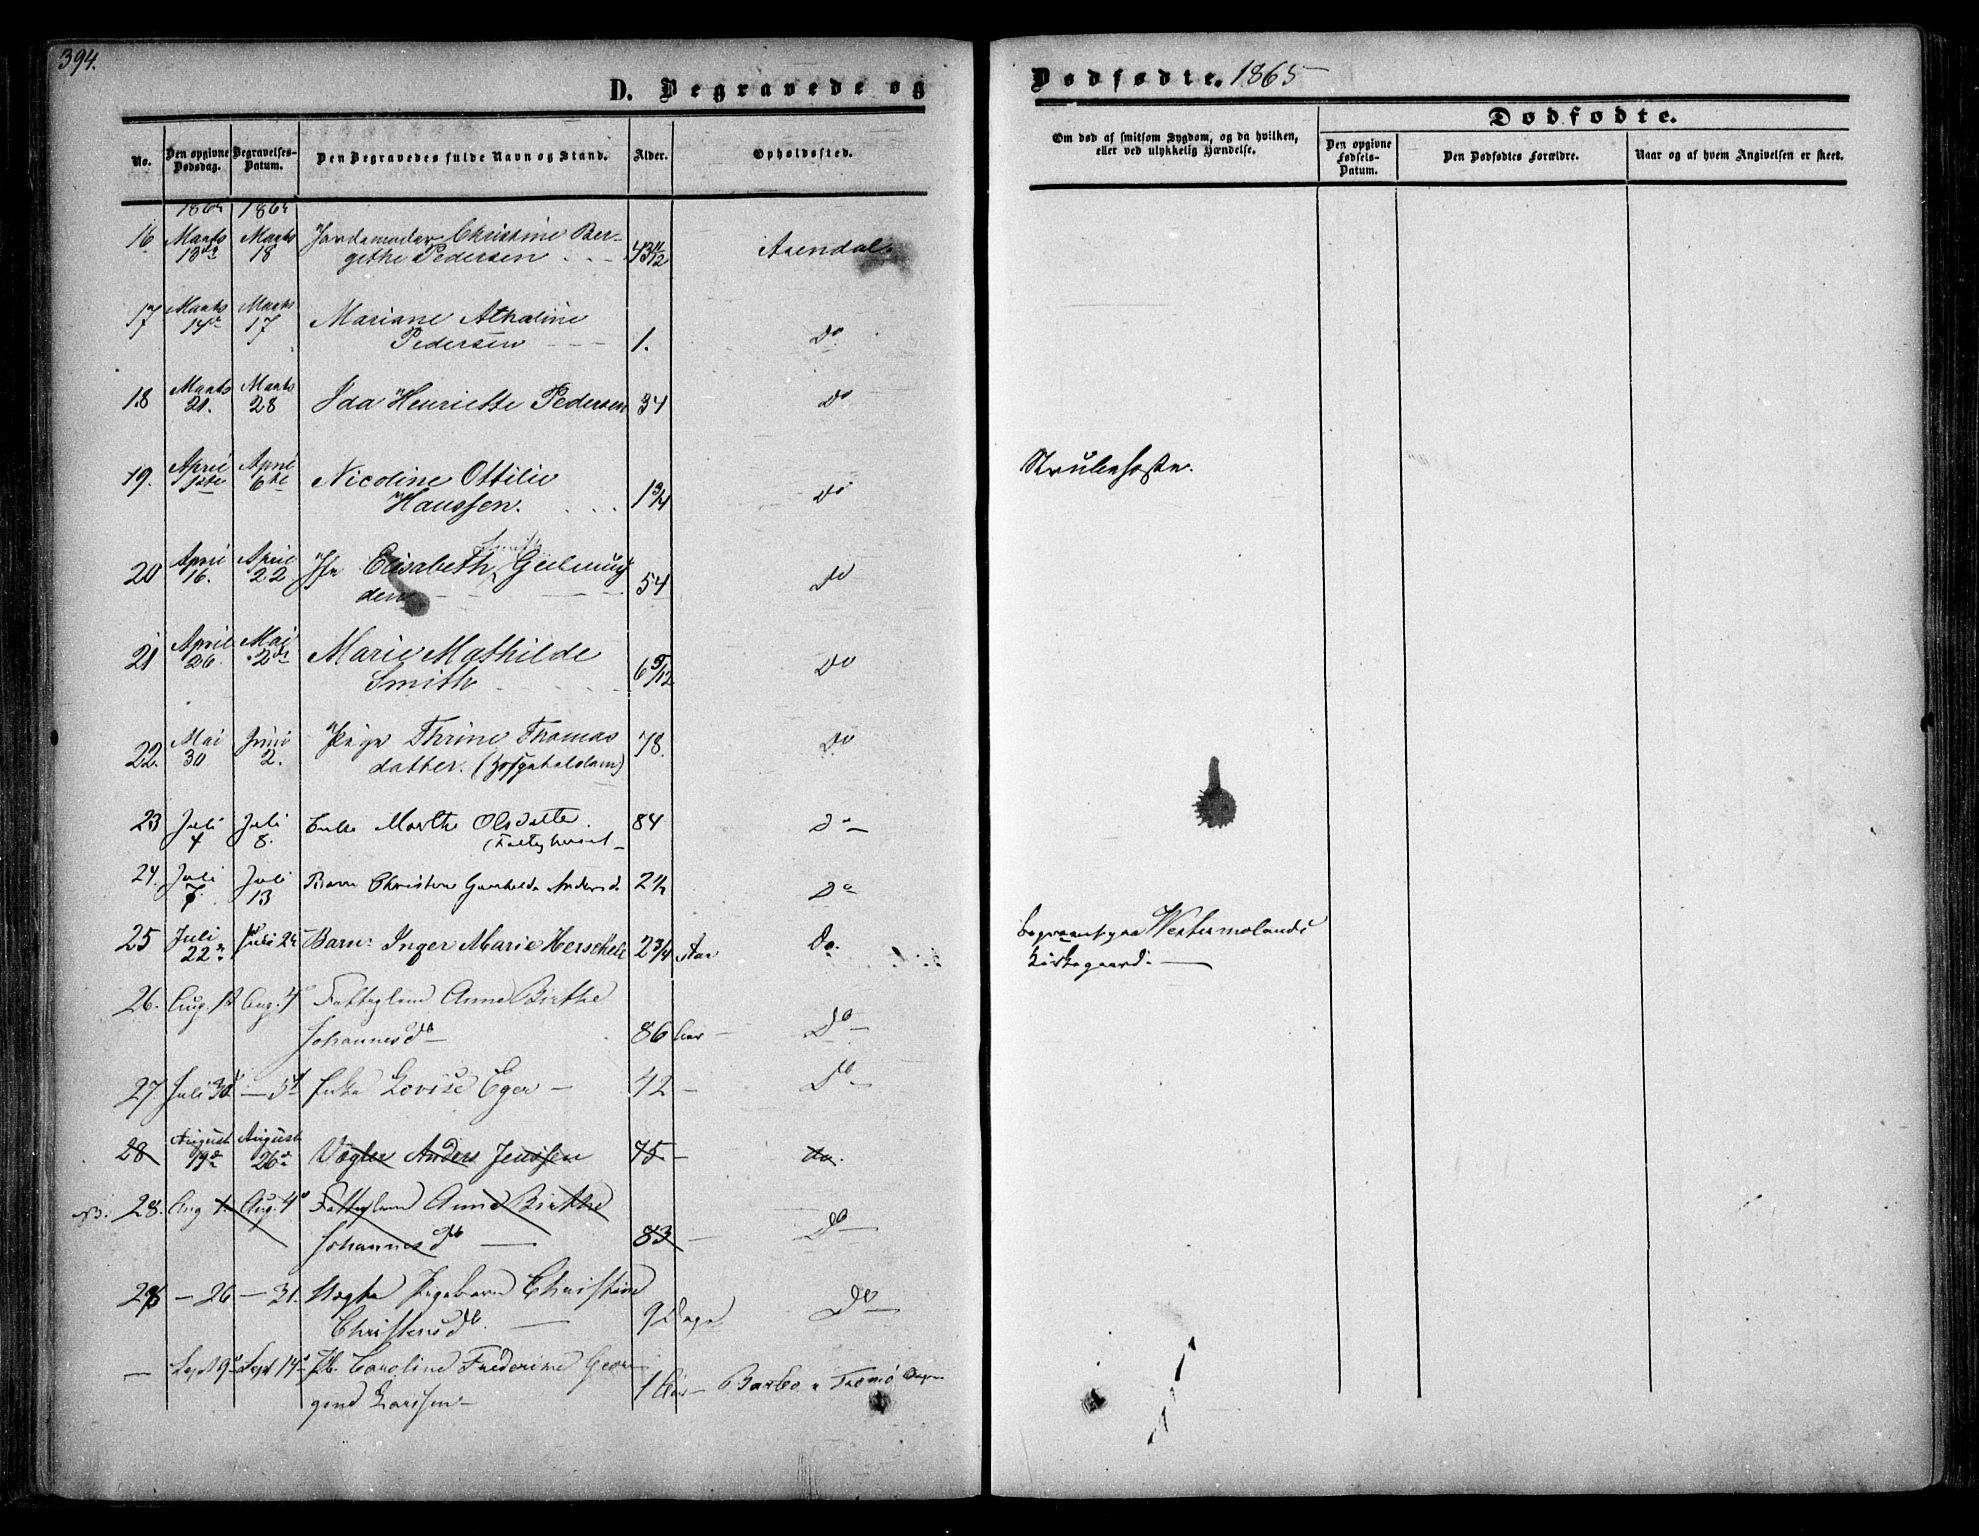 394.
D. Begravede og
No.
Den opgivne Dødsdag.
Begravelses-Datum.
Den Begravedes fulde Navn og Stand.
Alder.
Opholdssted.
1865 1865
16 Marts 13de Marts 18 Jordemoder Christine Ber-
gethe Pedersen 43 11/12 Arendal
17 Marts 14de Marts 17 Mariane Athaline
Pedersen 1. Do
18 Marts 21. Marts 28 Ida Henriette Pedersen 34 Do
19. April 1ste April 6te Nicoline Ottilie
Hanssen. 1 3/4 Do
Smith
20 April 16. April 22 Elisabeth Geelmuy
den 54 Do
21 April 26. Mai 2den Marie Mathilde
Smith 6 5/12 Do
22. Mai 30 Juni 2. Pige Thrine Thomas
datter. (Hospitalslem) 78. Do
23 Juli 4 Juli 8. Enke Marthe Olsdatter. 84 Do
24. Juli 7. Juli 13 Barn Christine Gunhilde Andersd 2 1/2 Do
25 Juli 22 Juli Barn: Inger Marie Herschell 2 3/4 Aar Do.
26. Aug. 1 Aug. 4 Fattiglem Anne Birthe
Johannesd 86 Aar Do
27. Juli 30 — 5 Enke Lovise Eger 42 — Do
28 August 19de August 26de Vægter Anders Jenssen 75 — do.
28. Aug 1. Aug. 4 Fattiglem Anne Birthe
Johannesd 83 — Do
28 — 26. — 31. Uægte Pigebarn Christine
Christensd. 9 Dage Do
— Sept 9 Sept 14 Pb. Caroline Frederine Geor
gine Larssen 1 Aar — Barbo Tromø
Dødfødte. 1865
Om død af smitsom Sygdom, og da hvilken,
eller ved ulykkelig Hændelse.
Dødfødte.
Den opgivne Fødsels-Datum.
Den Dødfødtes Forældre.
Naar og af hvem Angivelsen er skeet.
Strubehoste.
Begravet paa Westermolands
Kirkegaard.